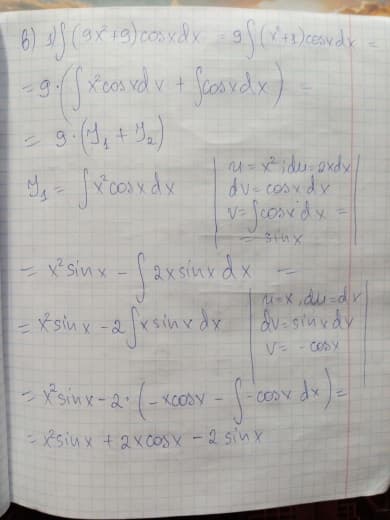 в) 1) ∫(9x²+9)cosxdx = 9∫(x²+1)cosxdx =
= 9·(∫x²cosxdx + ∫cosxdx) =
= 9·(Y₁ + Y₂)
Y₁ = ∫x²cosxdx
u = x²; du=2xdx
dv = cosxdx
v = ∫cosxdx =
= sinx
= x²sinx - ∫2xsinxdx =
= x²sinx - 2∫xsinxdx
u=x, du=dx
dv=sinxdx
v = -cosx
= x²sinx - 2·(-xcosx - ∫-cosxdx) =
= x²sinx + 2xcosx - 2sinx